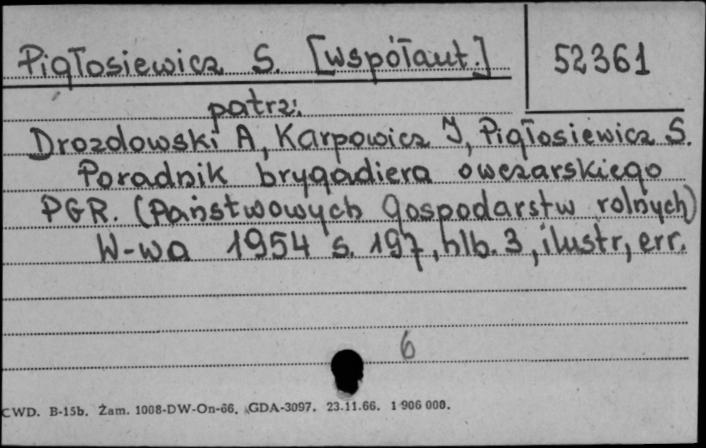 Piątosiewicz S. [współaut.]
52361
patrz:
Drozdowski A, Karpowicz J, Piątosiewicz S.
Poradnik brygadiera owczarskiego
PGR. (Państwowych Gospodarstw rolnych)
W-wa 1954 s. 197, nlb. 3, ilustr, err.
6
CWD. B-15b. Zam. 1008-DW-On-66. GDA-3097. 23.11.66. 1 906 000.